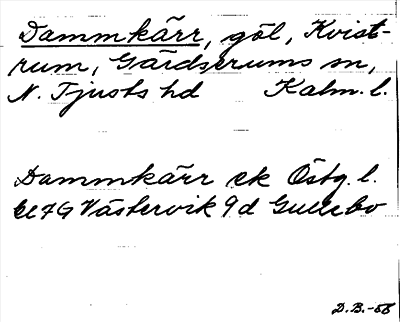 Dammkärr, göl, Kvist-
rum, Gärdserums sn,
N. Tjusts hd Kalm. l.
Dammkärr ek Östg. l.
Västervik 9d Gullebo
D.B.-56